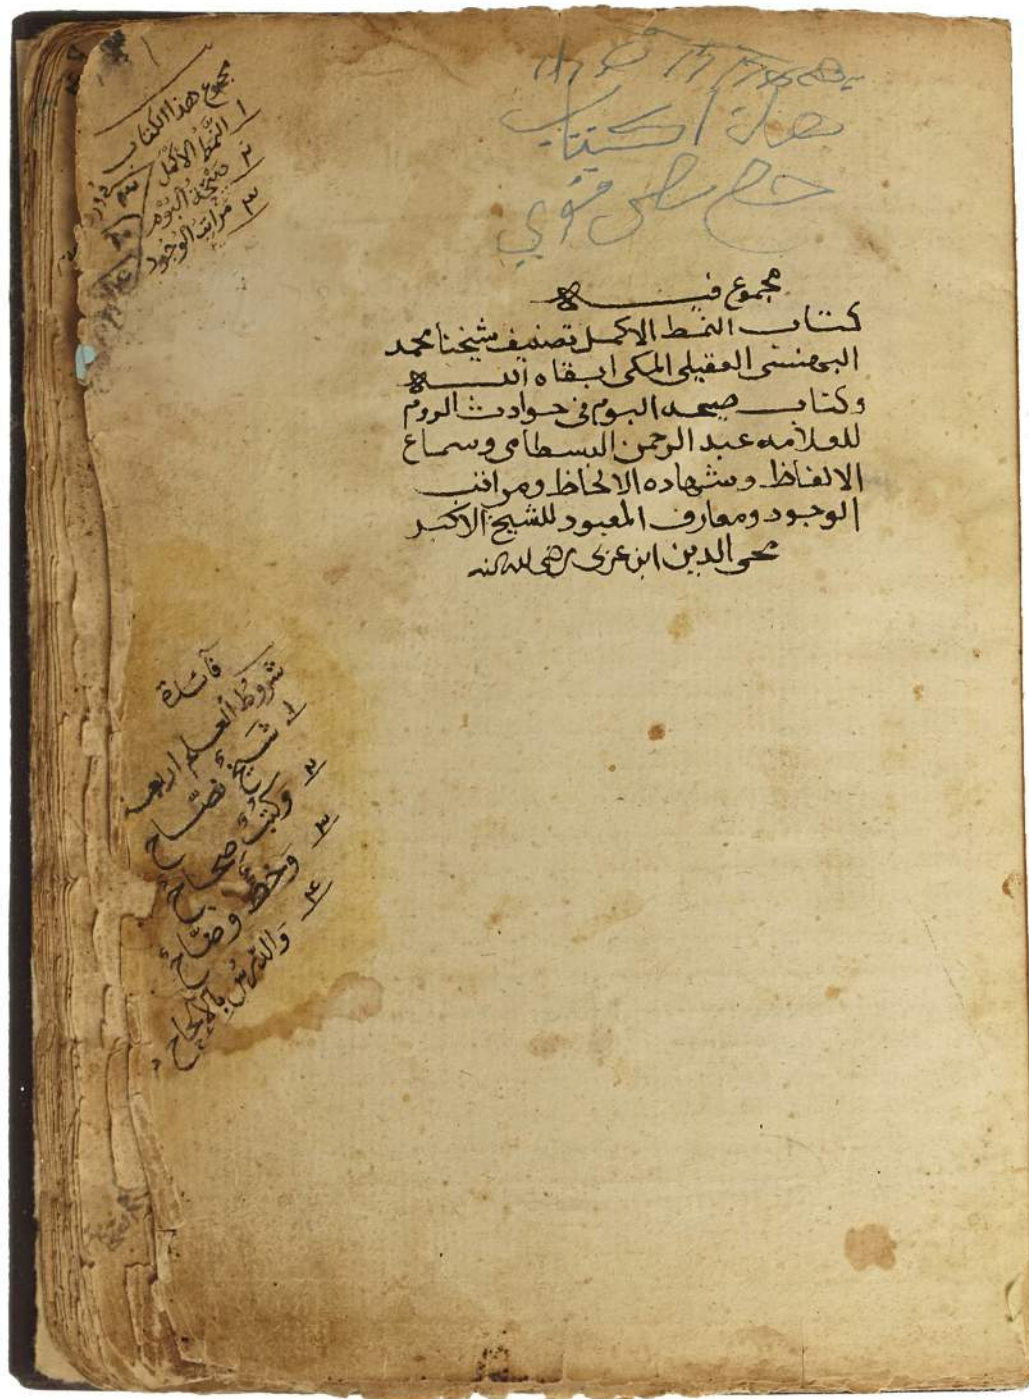 مجموع هذا الكتاب
١ النمط الأكمل
٢ صيحة البوم
٣ مراتب الوجود
هذا الكتاب
مجموع فيه
كتاب النمط الاكمل تصنيف شيخنا محمد
البهنسى العقيلى المكى ابقاه الله
وكتاب صيحه البوم فى حوادث الروم
للعلامه عبد الرحمن البسطامى وسماع
الالفاظ وشهاده الالحاظ ومراتب
الوجود ومعارف المعبود للشيخ الاكبر
محى الدين ابن عربى رضى الله عنه
فآئدة
شروط العلم اربعة
١ شيخ نصّاح
٢ وكتب صحاح
٣ وخط وضّاح
٤ والدرس بالإلحاح